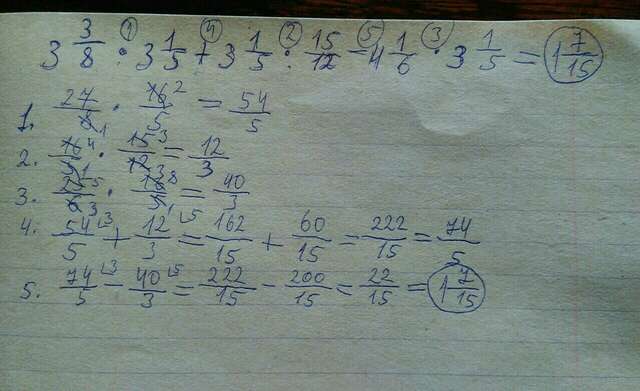 3 3/8 : 3 1/5 + 3 1/5 : 15/12 - 4 1/6 · 3 1/5 = 1 7/15
1. 27/8 · 16/5 = 54/5
2. 16/5 · 15/12 = 12/3
3. 25/6 · 16/5 = 40/3
4. 54/5 + 12/3 = 162/15 + 60/15 = 222/15 = 74/5
5. 74/5 - 40/3 = 222/15 - 200/15 = 22/15 = 1 7/15